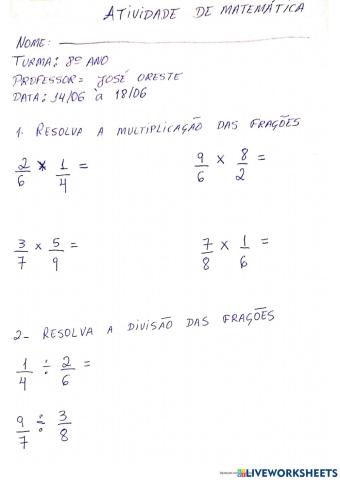 ATIVIDADE DE MATEMÁTICA
NOME:
TURMA: 8º ANO
PROFESSOR= JOSÉ ORESTE
DATA: 14/06 à 18/06
1. RESOLVA A MULTIPLICAÇÃO DAS FRAÇÕES
2/6 x 1/4 = 9/6 x 8/2 =
3/7 x 5/9 = 7/8 x 1/6 =
2- RESOLVA A DIVISÃO DAS FRAÇÕES
1/4 ÷ 2/6 =
9/7 ÷ 3/8
LIVEWORKSHEETS